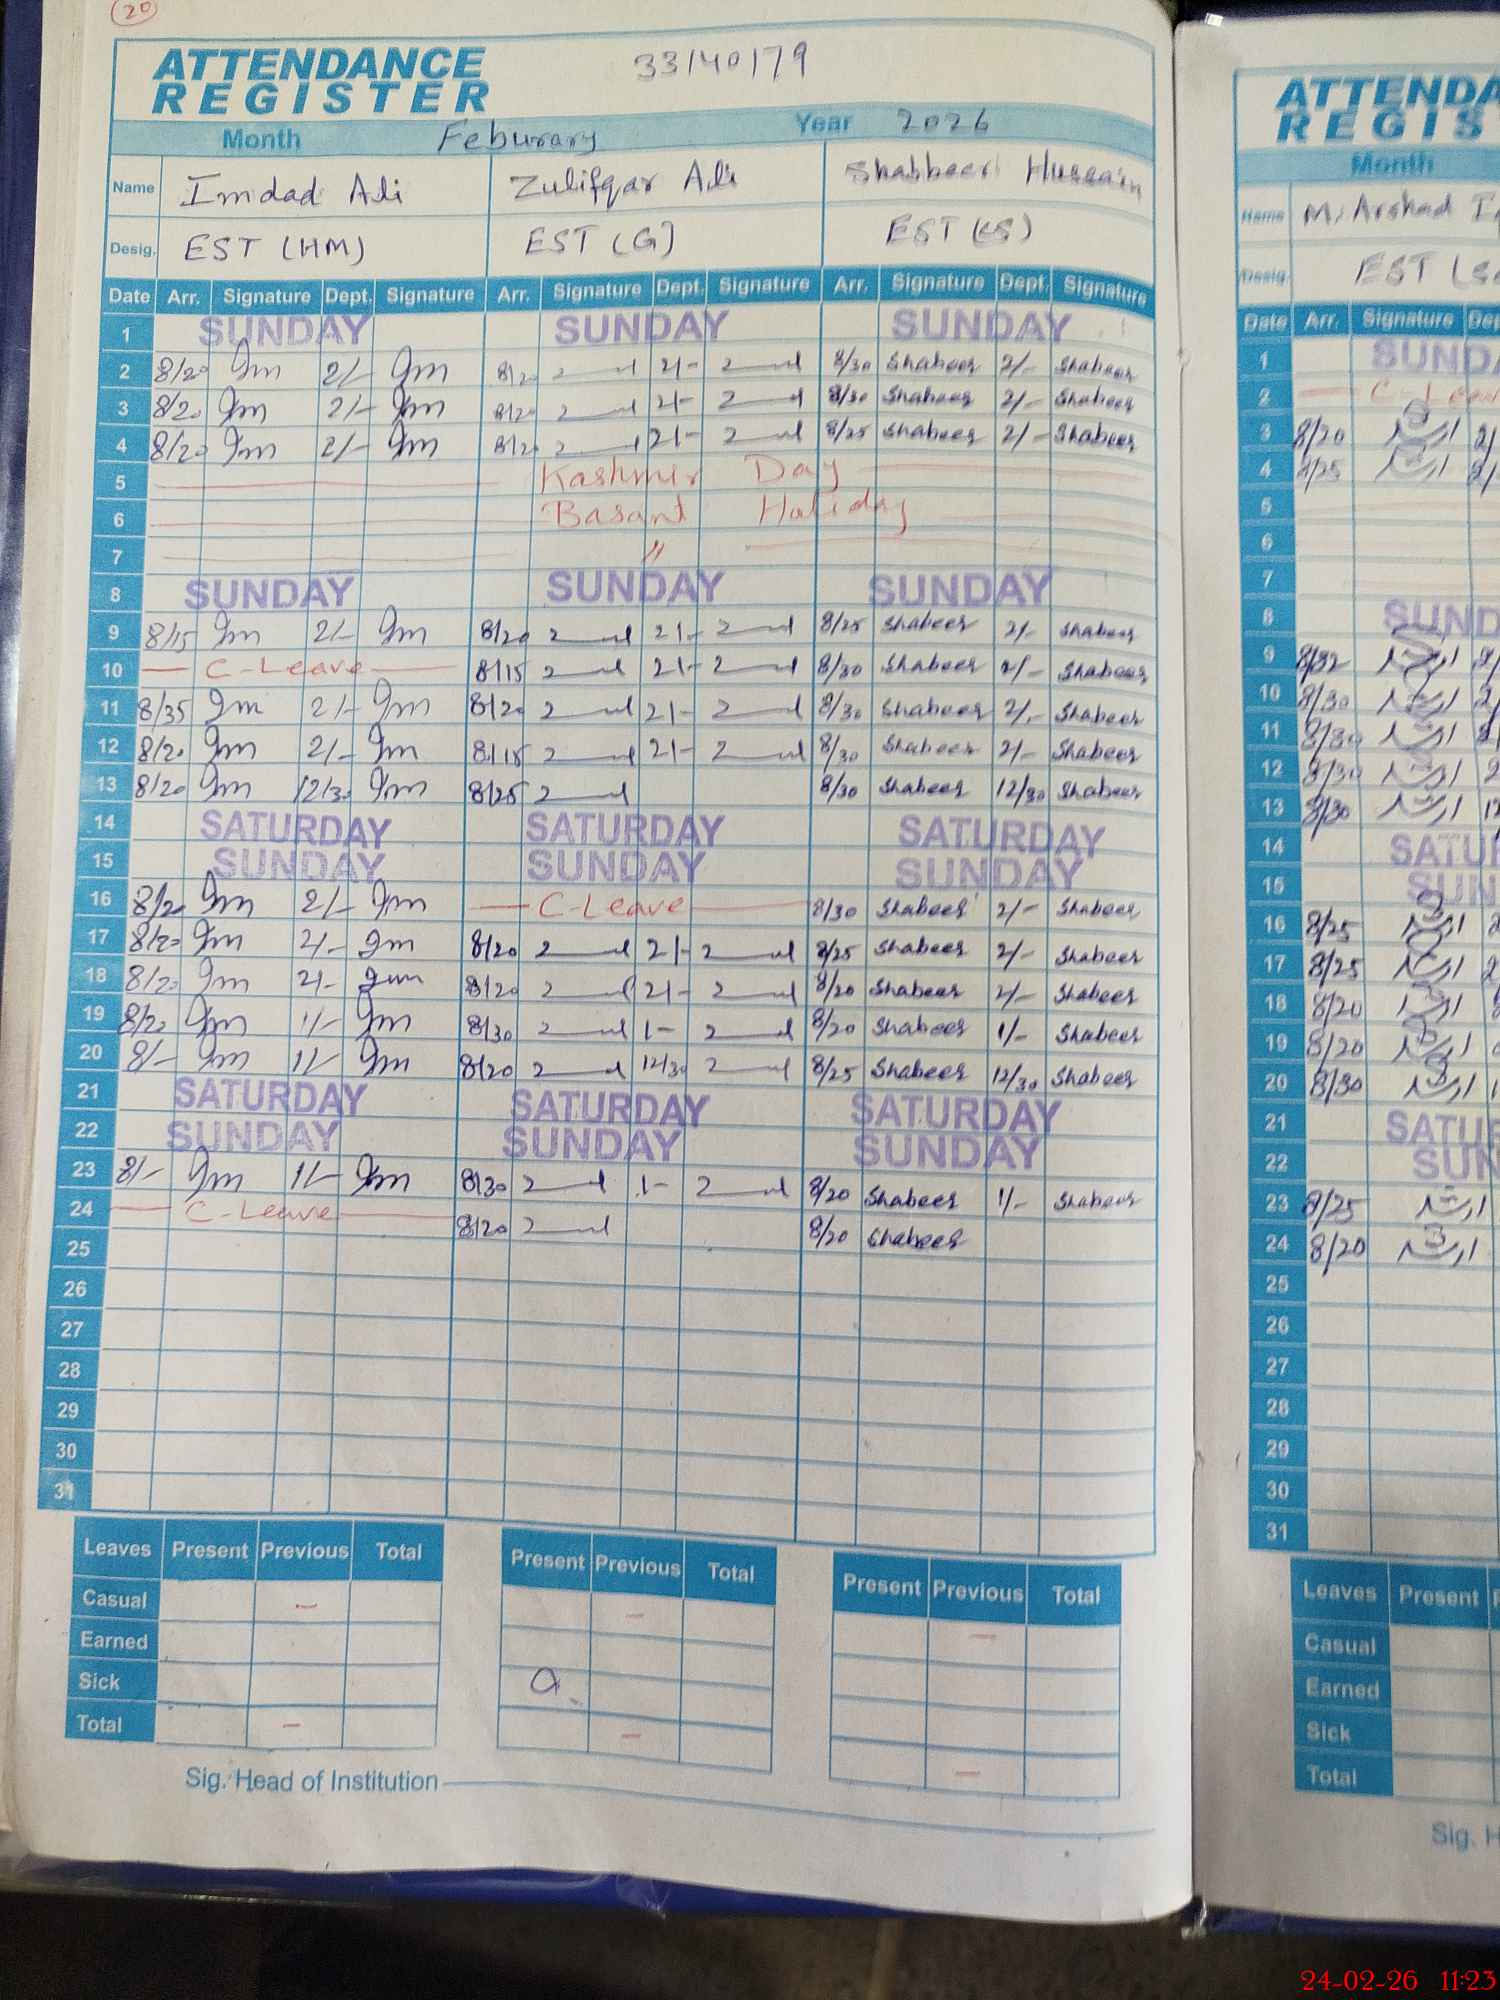 20
ATTENDANCE REGISTER 33140179
Month Feburary Year 2026
Name Imdad Ali Zulifqar Ali Shabbeer Hussain
Desig. EST (HM) EST (G) EST (ES)
Date Arr. Signature Dept. Signature Arr. Signature Dept. Signature Arr. Signature Dept. Signature
1 SUNDAY SUNDAY SUNDAY
2 8/20 2/- 8/20 2/- 8/30 Shabeer 2/- Shabeer
3 8/20 2/- 8/20 2/- 8/30 Shabeer 2/- Shabeer
4 8/20 2/- 8/20 2/- 8/25 Shabeer 2/- Shabeer
5 Kashmir Day
6 Basant Holiday
7 "
8 SUNDAY SUNDAY SUNDAY
9 8/15 2/- 8/20 2/- 8/25 Shabeer 2/- Shabeer
10 C-Leave 8/15 2/- 8/30 Shabeer 2/- Shabeer
11 8/35 2/- 8/20 2/- 8/30 Shabeer 2/- Shabeer
12 8/20 2/- 8/15 2/- 8/30 Shabeer 2/- Shabeer
13 8/20 12/30 8/25 8/30 Shabeer 12/30 Shabeer
14 SATURDAY SATURDAY SATURDAY
15 SUNDAY SUNDAY SUNDAY
16 8/20 2/- C-Leave 8/30 Shabeer 2/- Shabeer
17 8/20 2/- 8/20 2/- 8/25 Shabeer 2/- Shabeer
18 8/20 2/- 8/20 2/- 8/20 Shabeer 2/- Shabeer
19 8/20 1/- 8/30 1- 8/20 Shabeer 1/- Shabeer
20 8/- 1/- 8/20 12/30 8/25 Shabeer 12/30 Shabeer
21 SATURDAY SATURDAY SATURDAY
22 SUNDAY SUNDAY SUNDAY
23 8/- 1/- 8/30 1- 8/20 Shabeer 1/- Shabeer
24 C-Leave 8/20 8/20 Shabeer
25
26
27
28
29
30
31
Leaves Present Previous Total Present Previous Total Present Previous Total
Casual - - -
Earned
Sick
Total - - -
Sig. Head of Institution
ATTENDA
REGIS
Month
Name M. Arshad
Desig. EST
Date Arr. Signature
1 SUND
2 C-Leav
3 8/20
4 8/25
5
6
7
8 SUND
9 8/32
10 8/30
11 8/30
12 8/30
13 8/30
14 SATU
15 SUN
16 8/25
17 8/25
18 8/20
19 8/20
20 8/30
21 SATU
22 SUN
23 8/25
24 8/20
25
26
27
28
29
30
31
Leaves Present
Casual
Earned
Sick
Total
Sig. H
24-02-26 11:23